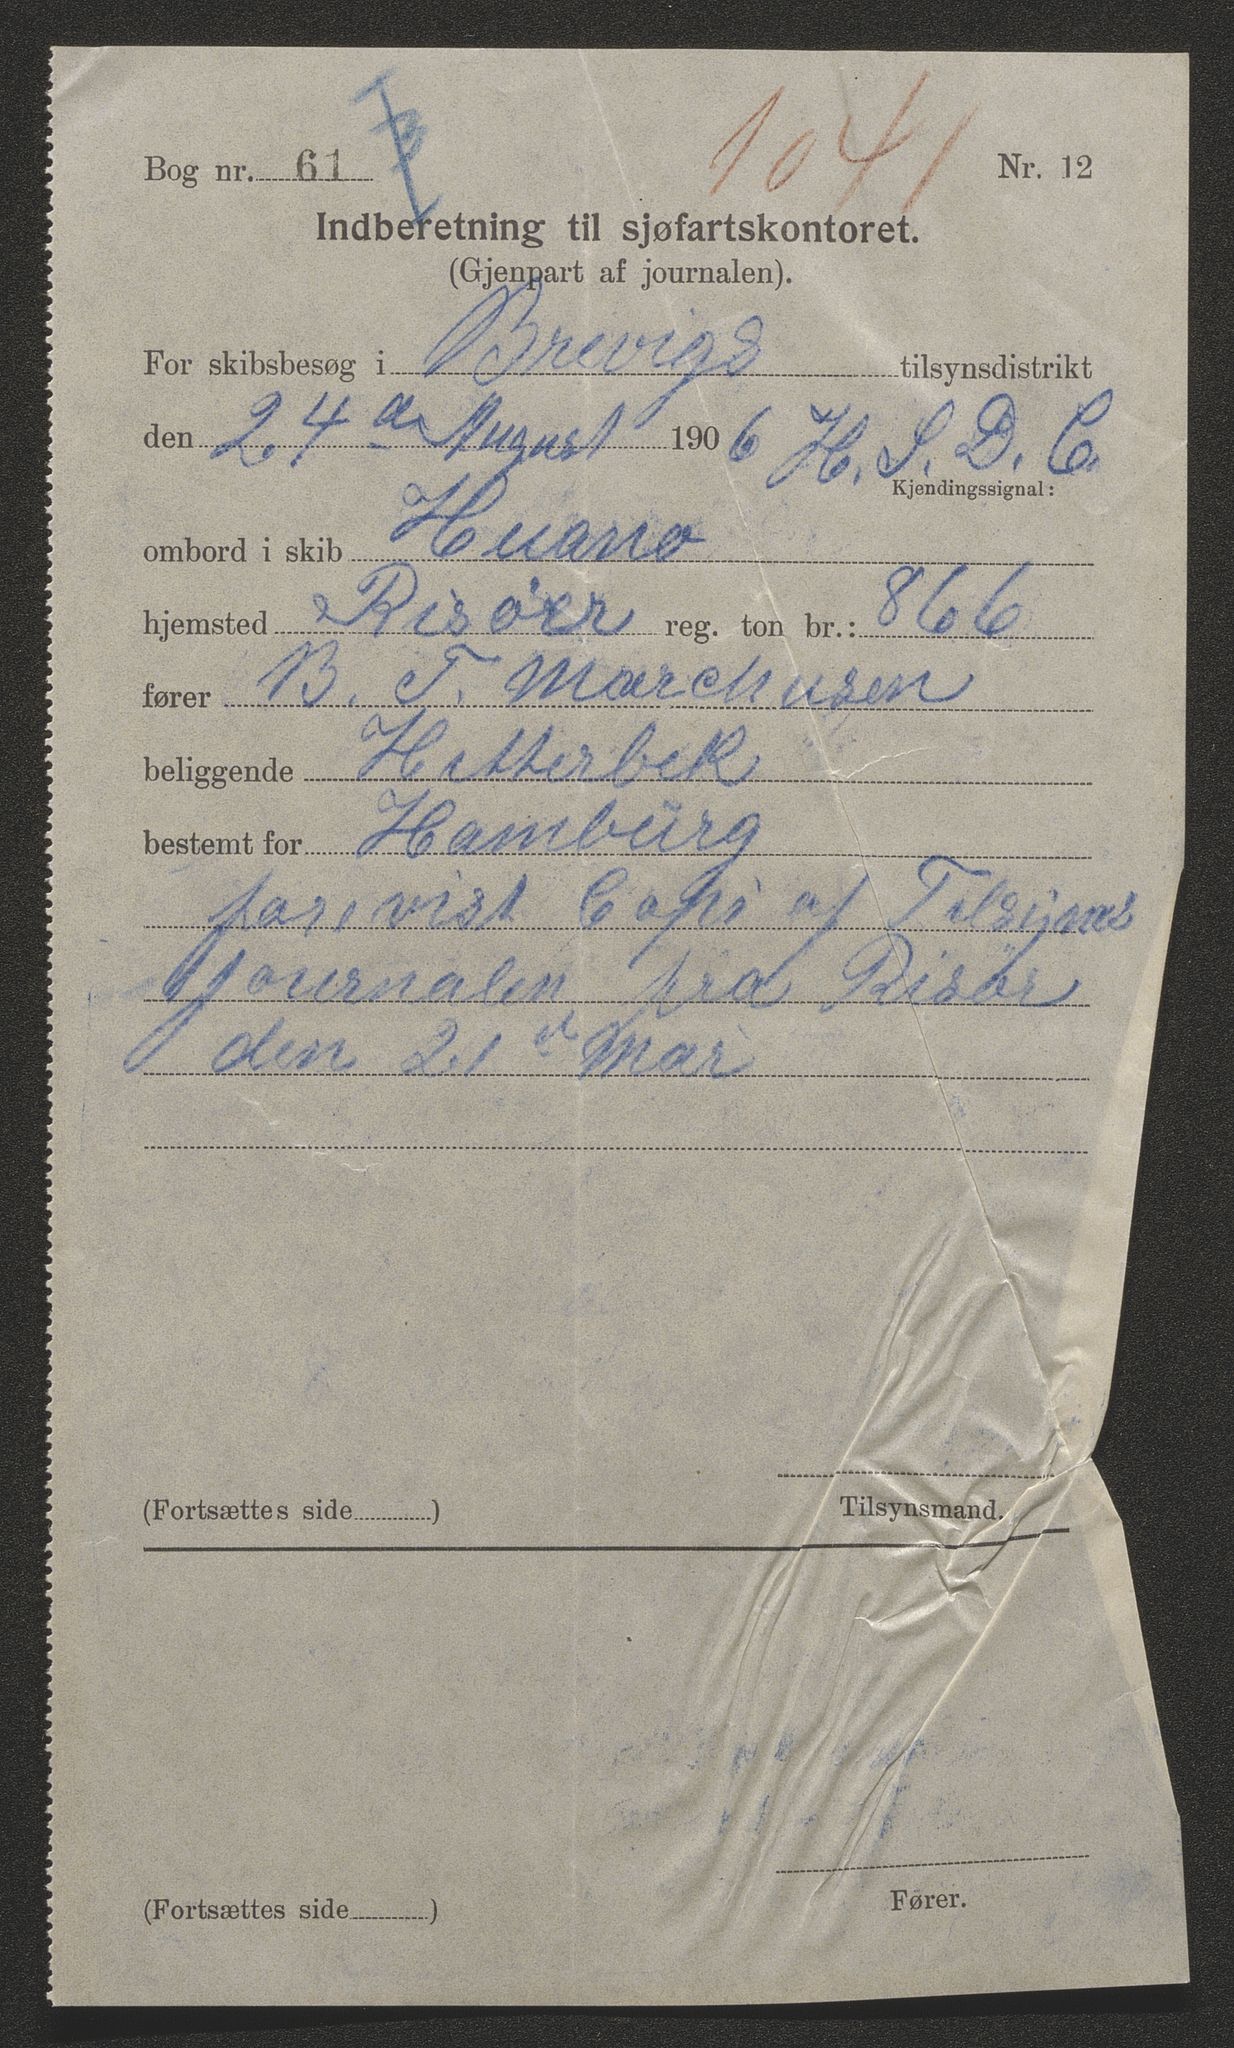 1041
Bog nr. 61
Nr. 12
Indberetning til sjøfartskontoret.
(Gjenpart af journalen).
For skibsbesøg i Brevigs tilsynsdistrikt
den 24de August 1906 H. S. D. C.
Kjendingssignal:
ombord i skib Huano
hjemsted Risöer reg. ton br.: 866
fører B. T. Marchusen
beliggende Hitterbek
bestemt for Hambürg
forevist Copi af Tilsyns
journalen fra Risör
den 21d Mai
(Fortsættes side ) Tilsynsmand.
(Fortsættes side ) Fører.